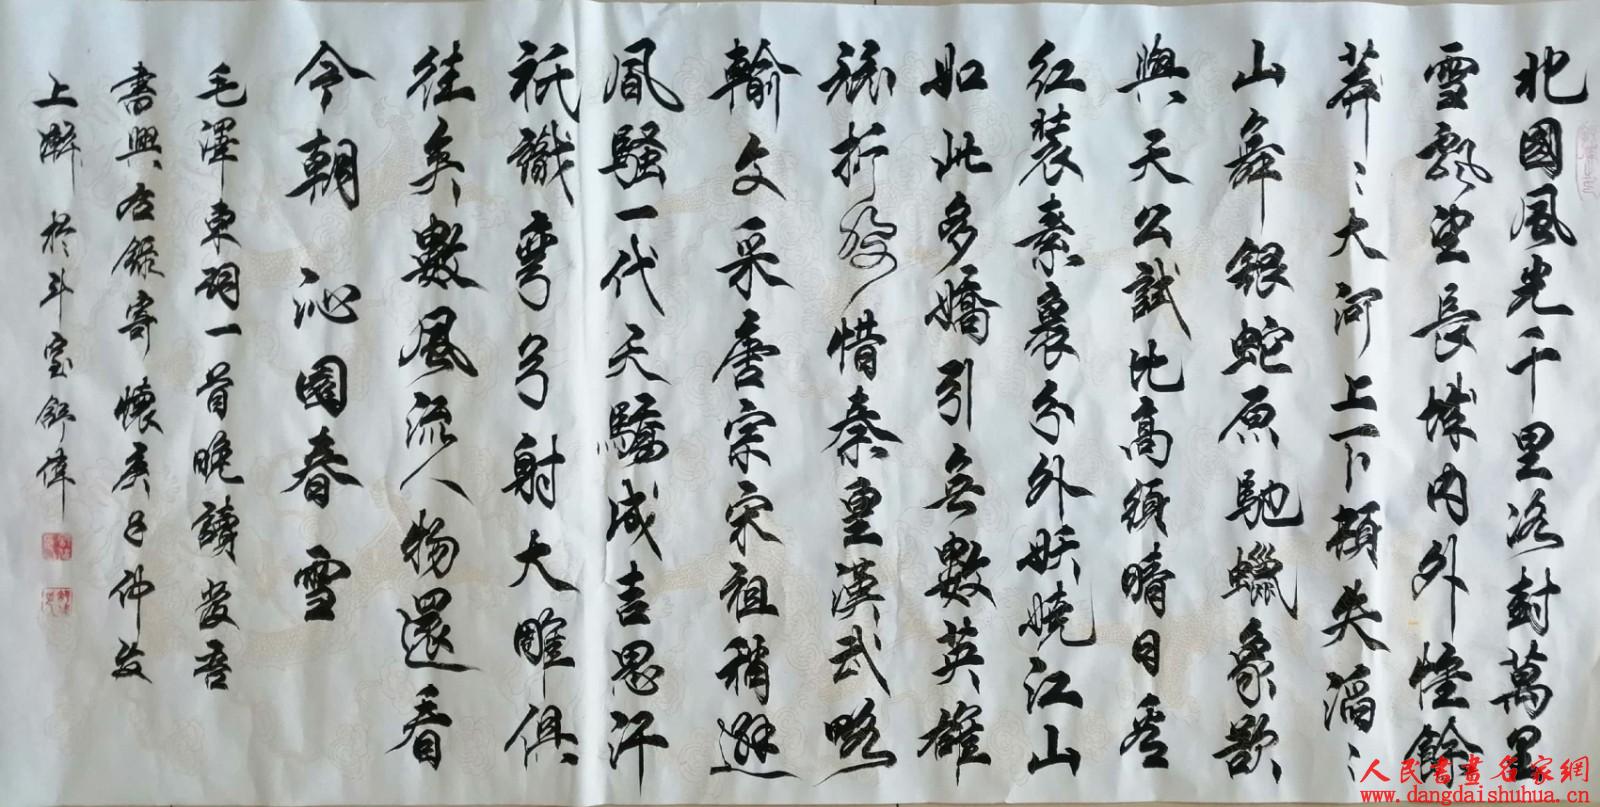 北國風光千里冰封萬里
雪飄望長城內外惟餘
莽〻大河上下頓失滔〻
山舞銀蛇原馳蠟象欲
與天公試比高須晴日看
紅裝素裹分外妖嬈江山
如此多嬌引無數英雄
競折腰惜秦皇漢武略
輸文采唐宗宋祖稍遜
風騷一代天驕成吉思汗
祇識彎弓射大雕俱
往矣數風流人物還看
今朝 沁園春 雪
毛澤東詞一首晚讀發吾
書興右錄寄懷庚子仲夏
上澣於斗室舒偉
人民書畫名家網
www.dangdaishuhua.cn